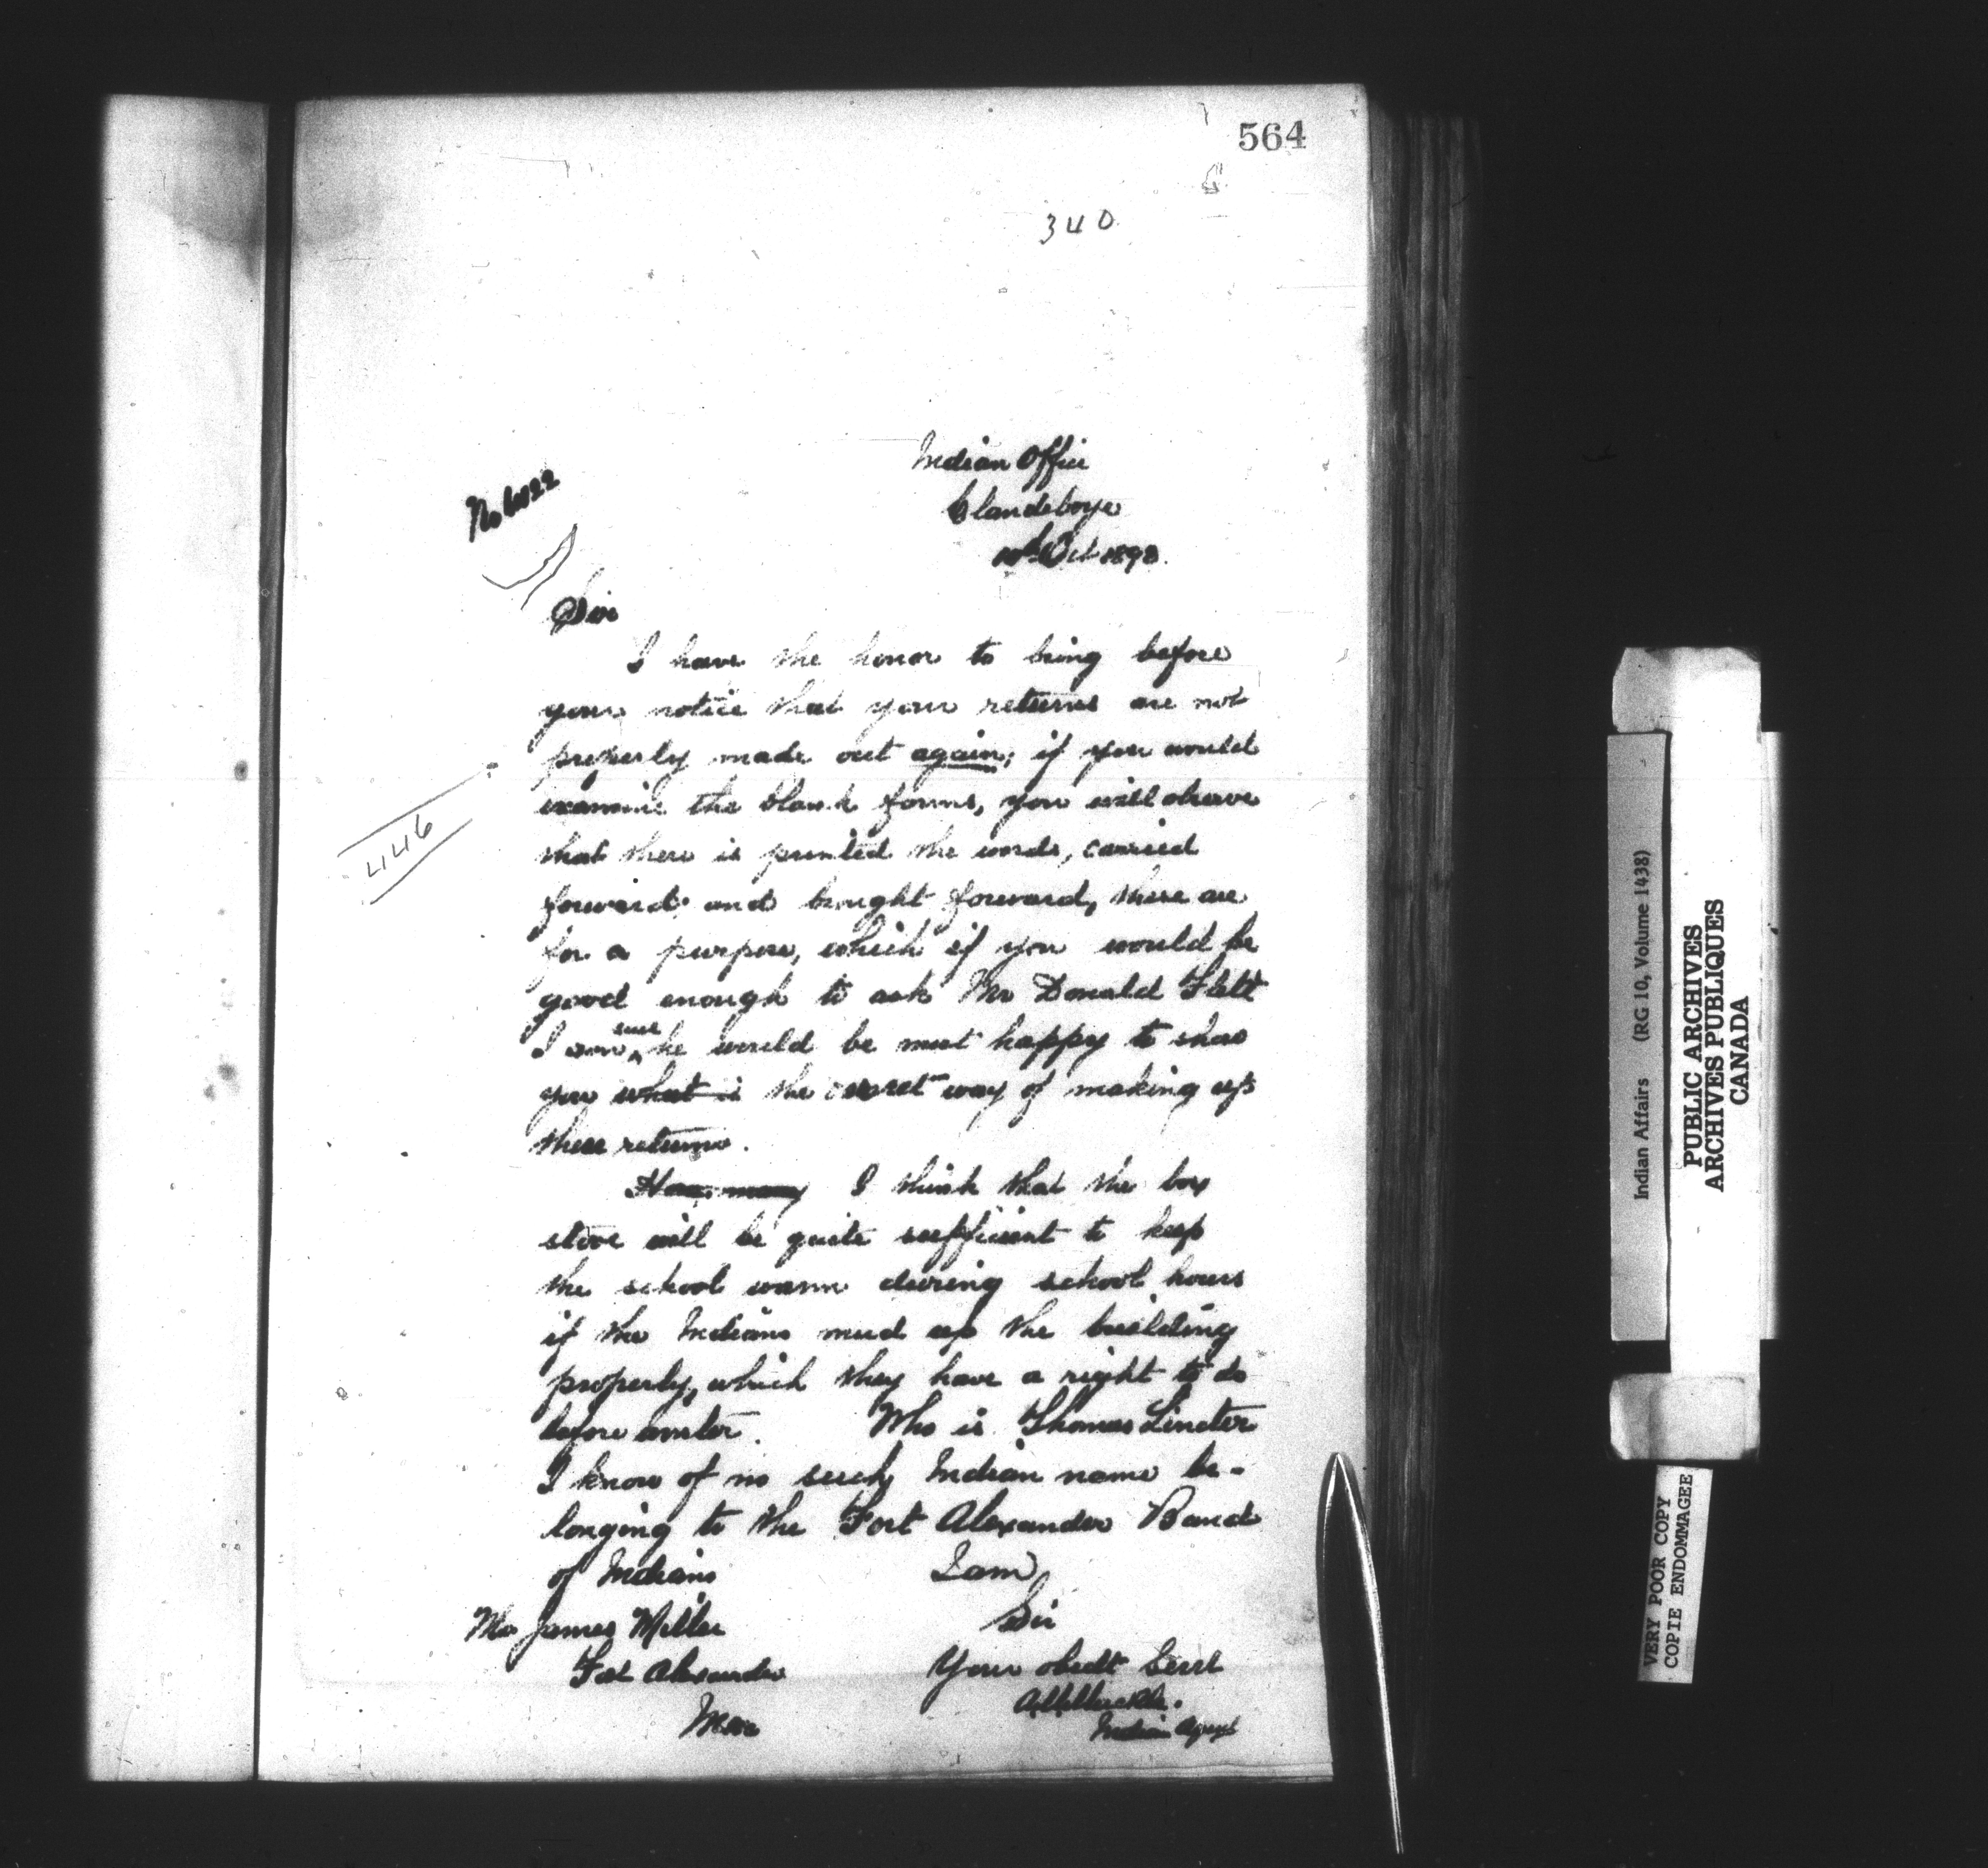 564
340
Indian Office
Clandeboye
10th Oct 1890.
No 6022
Sir
I have the honor to bring before
your notice that your returns are not
properly made out again; if you would
examine the blank forms, you will observe
that there is printed the words, carried
forward and brought forward, these are
446
for a purpose, which if you would be
good enough to ask Mr Donald Flett
I am sure he would be most happy to show
you what is the correct way of making up
these returns.
How many I think that the box
stove will be quite sufficient to keep
the school warm during school hours
if the Indians mud up the building
properly, which they have a right to do
before winter. Who is Thomas Lincter
I know of no such Indian name be-
longing to the Fort Alexander Band
of Indians I am
Mr James Miller Sir
Fort Alexander Your obedt Servt
Man
Indian Agent
Indian Affairs (RG 10, Volume 1438)
PUBLIC ARCHIVES
ARCHIVES PUBLIQUES
CANADA
VERY POOR COPY
COPIE ENDOMMAGEE